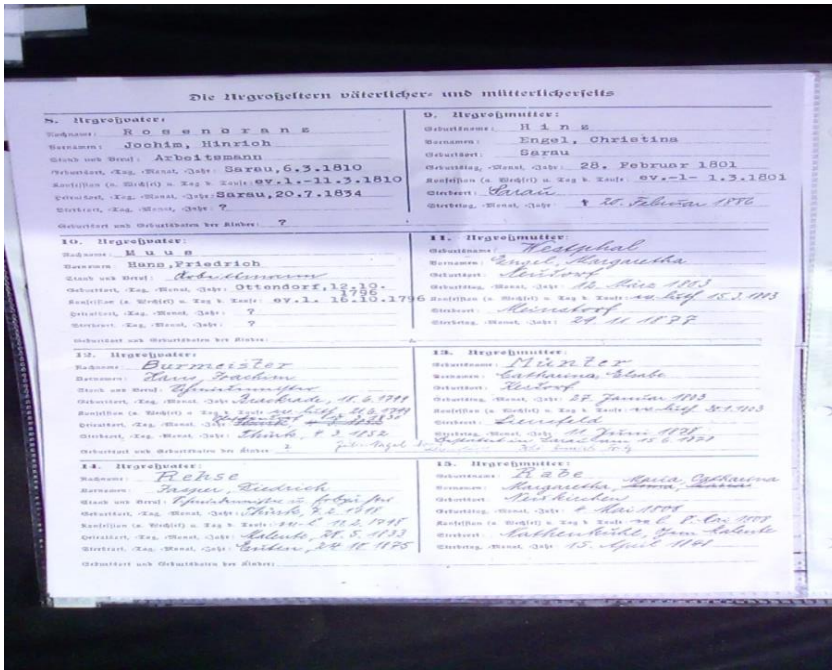 Die Urgroßeltern väterlicher- und mütterlicherseits
8. Urgroßvater:
Nachname: Rosencranz
Vornamen: Jochim, Hinrich
Stand und Beruf: Arbeitsmann
Geburtsort, -Tag, -Monat, -Jahr: Sarau, 6.3.1810
Konfession (u. Wechsel) u. Tag d. Taufe: ev.l.-11.3.1810
Heiratsort, -Tag, -Monat, -Jahr: Sarau, 20.7.1834
Sterbeort, -Tag, -Monat, -Jahr: ?
Geburtsort und Geburtsdaten der Kinder: ?
9. Urgroßmutter:
Geburtsname: Hinz
Vornamen: Engel, Christina
Geburtsort: Sarau
Geburtstag, -Monat, -Jahr: 28. Februar 1801
Konfession (u. Wechsel) u. Tag d. Taufe: ev.-l- 1.3.1801
Sterbeort: Sarau
Sterbetag, -Monat, -Jahr: 20. Februar 1886
10. Urgroßvater:
Nachname: Muus
Vornamen: Hans, Friedrich
Stand und Beruf: Arbeitsmann
Geburtsort, -Tag, -Monat, -Jahr: Ottendorf, 12.10.
1796
Konfession (u. Wechsel) u. Tag d. Taufe: ev.l. 16.10.1796
Heiratsort, -Tag, -Monat, -Jahr: ?
Sterbeort, -Tag, -Monat, -Jahr: ?
Geburtsort und Geburtsdaten der Kinder:
11. Urgroßmutter:
Geburtsname: Westphal
Vornamen: Engel, Margaretha
Geburtsort: Neudorf
Geburtstag, -Monat, -Jahr: 12. März 1803
Konfession (u. Wechsel) u. Tag d. Taufe: ev. luth 15.3.1803
Sterbeort:
Sterbetag, -Monat, -Jahr: 29. 11 1877
12. Urgroßvater:
Nachname: Burmeister
Vornamen: Hans Joachim
Stand und Beruf:
Geburtsort, -Tag, -Monat, -Jahr: 18.6.1799
Konfession (u. Wechsel) u. Tag d. Taufe: ev. luth 21.6.1799
Heiratsort, -Tag, -Monat, -Jahr:
Sterbeort, -Tag, -Monat, -Jahr: Thürk, 4 3 1852
Geburtsort und Geburtsdaten der Kinder
13. Urgroßmutter:
Geburtsname: Münter
Vornamen: Catharina, Elsabe
Geburtsort:
Geburtstag, -Monat, -Jahr: 27 Januar 1803
Konfession (u. Wechsel) u. Tag d. Taufe: ev. luth 30.1.1803
Sterbeort:
Sterbetag, -Monat, -Jahr: Juni 1878
14. Urgroßvater:
Nachname: Rehse
Vornamen: Jasper, Diedrich
Stand und Beruf:
Geburtsort, -Tag, -Monat, -Jahr: Thürk,
Konfession (u. Wechsel) u. Tag d. Taufe: ev-l 11.2.1798
Heiratsort, -Tag, -Monat, -Jahr: Malente, 28.5.1833
Sterbeort, -Tag, -Monat, -Jahr: Eutin, 1875
Geburtsort und Geburtsdaten der Kinder:
15. Urgroßmutter:
Geburtsname: Rabe
Maria, Catharena
Vornamen: Margaretha,
Geburtsort: Neukirchen
Geburtstag, -Monat, -Jahr: 4 Mai 1808
Konfession (u. Wechsel) u. Tag d. Taufe: ev l. 8. Mai 1808
Sterbeort: Malente
Sterbetag, -Monat, -Jahr: 15. April 1841